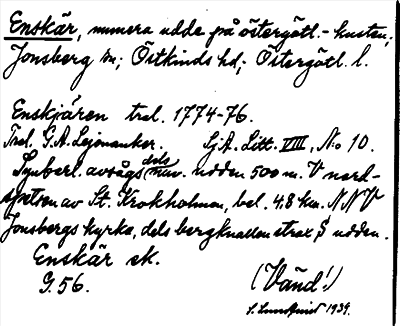 Enskär, numera udde på östergötl.-kusten;
Jonsberg sn; Östkinds hd; Östergötl. l.
Enskjären tral. 1774-76.
Tral. G.A. Lejonanker. Sj.A. Litt. VIII, No 10.
Synberl. avsågs dels nuv. udden 500 m. V nord-
spetsen av St. Krokholmen, bel. 4,8 km. NNV
Jonsbergs kyrka, dels bergknallen strax S udden.
Enskär ek.
G. 56.
(Vänd!)
S. Lundqvist 1939.